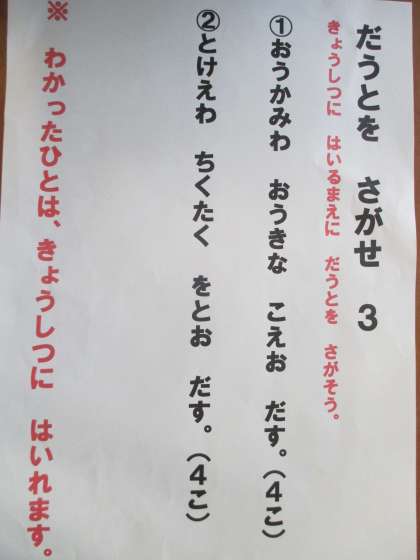 だうとを　さがせ　3
きょうしつに　はいるまえに　だうとを　さがそう。
①おうかみわ　おうきな　こえお　だす。（4こ）
②とけえわ　ちくたく　をとお　だす。（4こ）
※　わかったひとは、きょうしつに　はいれます。